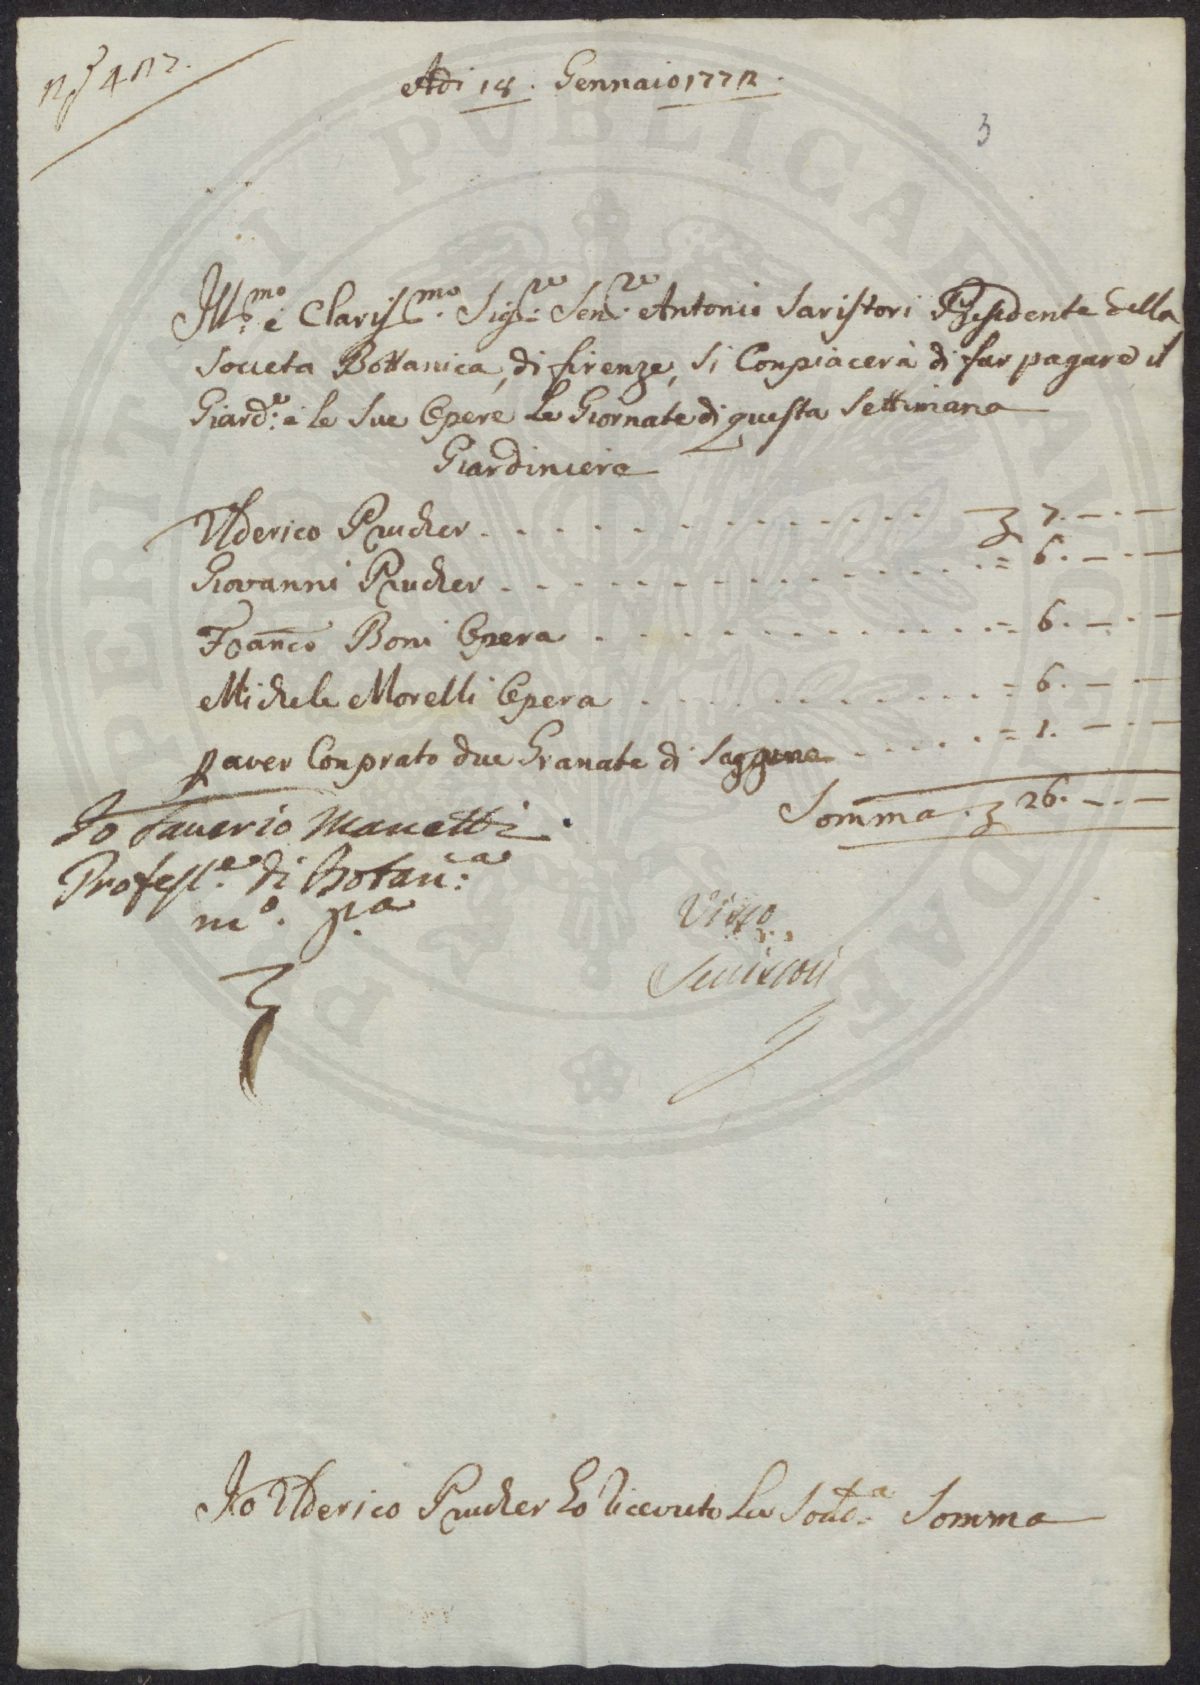 Adi 18. Gennaio 1772.
3
Ill.mo e Clariss.mo Sig.re Sen.re Antonio Saristori Presidente della
Società Bottanica, di firenze, si Conpiacerà di far pagare il
Giard.e e le Sue Opere Le Giornate di questa Settimana
Giardiniere
Ulderico Prucher . . . . . . 7. — . —
Giovanni Prucher . . . . . . = 6. — . —
Franco Boni Opera . . . . . . = 6. — . —
Michele Morelli Opera . . . . . . = 6. — . —
p aver Conprato due Granate di Saggina . . . . = 1. — . —
Somma . 26. — . —
Io Saverio Manetti
Profess.e di Botan.ca
m.o p.a
Visto
Io Ulderico Prucher ho Ricevuto La Sond.a Somma
PERITATI PVBLICAE